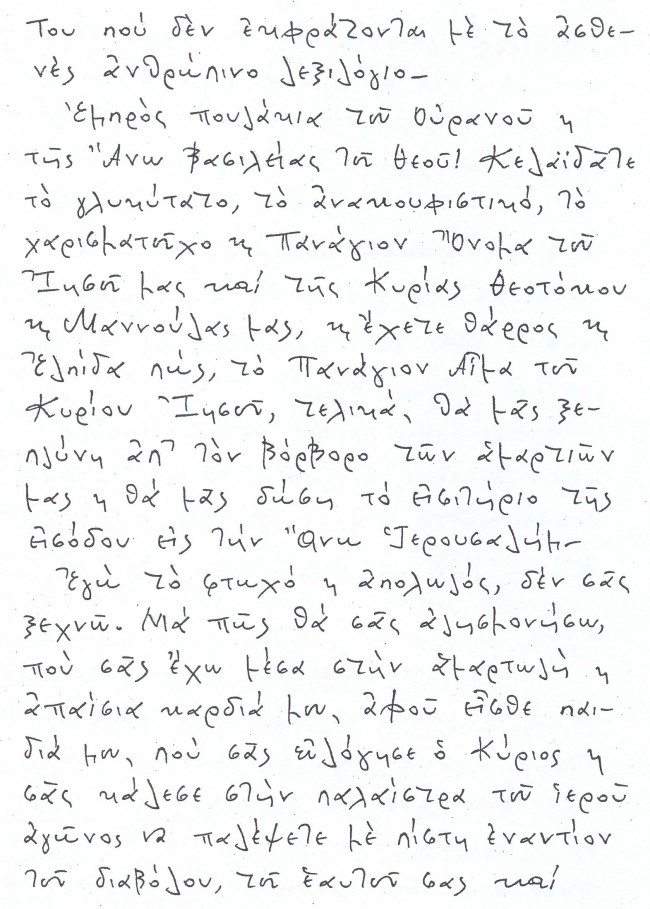 Του πού δὲν ἐκφράζονται μὲ τὸ ἀσθε-
νὲς ἀνθρώπινο λεξιλόγιο-
Ἐμπρὸς πουλάκια τοῦ Οὐρανοῦ κ
τῆς Ἄνω Βασιλείας τοῦ Θεοῦ! Κελαϊδᾶτε
τὸ γλυκύτατο, τὸ ἀνακουφιστικό, τὸ
χαρισματοῦχο κ Πανάγιον Ὄνομα τοῦ
Ἰησοῦ μας καί τῆς Κυρίας Θεοτόκου
κ Μαννούλας μας, κ ἔχετε θάρρος κ
Ἐλπίδα πώς, τὸ Πανάγιον Αἷμα τοῦ
Κυρίου Ἰησοῦ, τελικά, θά μᾶς ξε-
πλύνη ἀπ' τὸν βόρβορο τῶν ἁμαρτιῶν
μας κ θά μᾶς δώση τό εἰσιτήριο τῆς
εἰσόδου εἰς τήν Ἄνω Ἱερουσαλήμ-
Ἐγώ τὸ φτωχό κ ἀπολωλός, δέν σᾶς
ξεχνῶ. Μά πῶς θά σᾶς ἀλησμονήσω,
πού σᾶς ἔχω μέσα στήν ἁμαρτωλή κ
ἀπαίσια καρδιά μου, ἀφοῦ εἶσθε παι-
διά μου, πού σᾶς εὐλόγησε ὁ Κύριος κ
σᾶς κάλεσε στήν παλαίστρα τοῦ ἱεροῦ
ἀγῶνος νά παλέψετε μὲ πίστη ἐναντίον
τοῦ διαβόλου, τοῦ ἑαυτοῦ σας καί